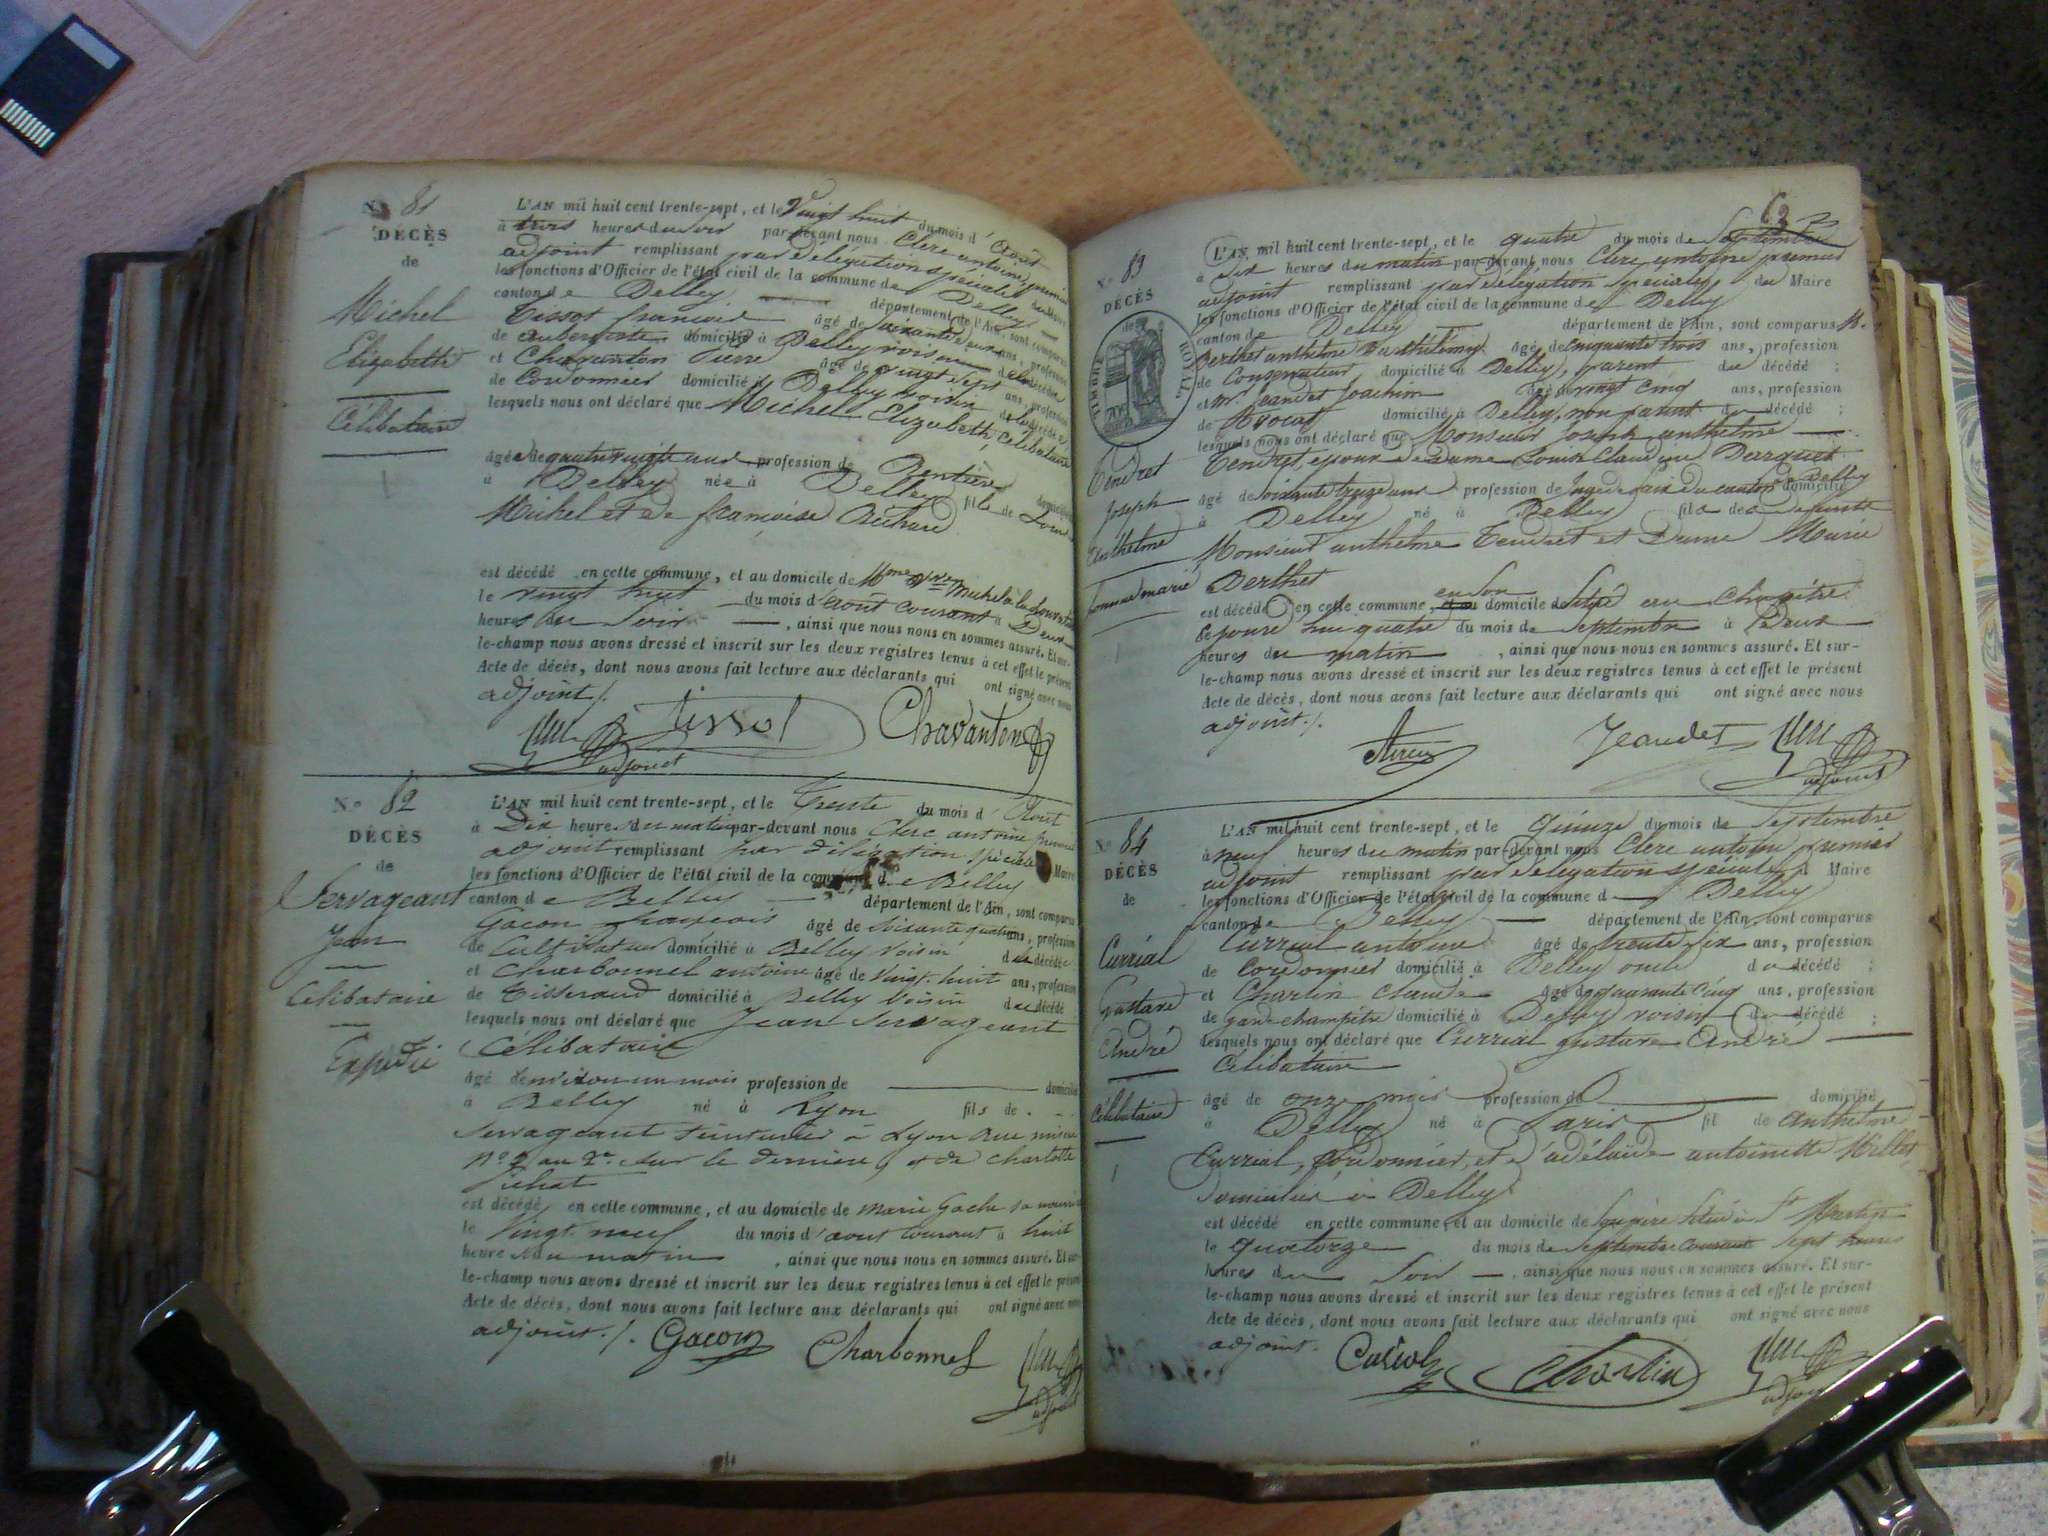 N° 81
DÉCÈS
de
Michel
Elizabeth
Célibataire
L'AN mil huit cent trente-sept, et le Vingt huit du mois d'Août
à trois heures du Soir par-devant nous Clerc antoine premier
adjoint remplissant par délégation spéciale
les fonctions d'Officier de l'état civil de la commune de Belley
canton de Belley département de l'Ain, sont comparus
Tissot françois âgé de soixante deux ans, profession
de aubergiste domicilié à Belley voisin de la décédée
et Chavanton Pierre âgé de vingt sept ans, profession
de Cordonnier domicilié à Belley voisin de la décédée
lesquels nous ont déclaré que Michel Elizabeth, Célibataire
âgée de quatre vingts ans profession de Rentière domiciliée
à Belley née à Belley fille de Louis
Michel et de françoise Richard
est décédé en cette commune, et au domicile de Mme Vve Michel
le vingt huit du mois d'août courant à Deux
heures du Soir, ainsi que nous nous en sommes assuré. Et sur-
le-champ nous avons dressé et inscrit sur les deux registres tenus à cet effet le présent
Acte de décès, dont nous avons fait lecture aux déclarants qui ont signé avec nous
adjoint /.
Clerc Tissot Chavanton
adjoint
N° 82
DÉCÈS
de
Servageant
Jean
Célibataire
Expédié
L'AN mil huit cent trente-sept, et le Trente du mois d'Août
à Dix heures du matin par-devant nous Clerc antoine premier
adjoint remplissant par délégation spéciale Maire
les fonctions d'Officier de l'état civil de la commune de Belley
canton de Belley département de l'Ain, sont comparus
Gacon françois âgé de Soixante quatre ans, profession
de Cultivateur domicilié à Belley Voisin du décédé
et Charbonnel antoine âgé de Vingt huit ans, profession
de Tisserand domicilié à Belley Voisin du décédé
lesquels nous ont déclaré que Jean Servageant
Célibataire
âgé d'environ un mois profession de domicilié
à Belley né à Lyon fils de
Servageant teinturier à Lyon Rue
N° 2 au 2e sur le derrière, et de Charlotte
Pichat
est décédé en cette commune, et au domicile de Marie Gache sa nourrice
le Vingt neuf du mois d'aout Courant à huit
heures du matin, ainsi que nous nous en sommes assuré. Et sur-
le-champ nous avons dressé et inscrit sur les deux registres tenus à cet effet le présent
Acte de décès, dont nous avons fait lecture aux déclarants qui ont signé avec nous
adjoint. /. Gacon Charbonnel Clerc
adjoint
63
N° 83
DÉCÈS
de
TIMBRE ROYAL
Tendret
Joseph
Anthelme
homme marié
L'AN mil huit cent trente-sept, et le quatre du mois de Septembre
à dix heures du matin par-devant nous Clerc Antoine premier
adjoint remplissant par délégation Spéciale du Maire
les fonctions d'Officier de l'état civil de la commune de Belley
canton de Belley département de l'Ain, sont comparus M.
Berthet anthelme Barthélemy âgé de cinquante trois ans, profession
de Conservateur domicilié à Belley, parent du décédé ;
et Mr Jeandet Joachim âgé de vingt cinq ans, profession
de Avocat domicilié à Belley, non parent du décédé ;
lesquels nous ont déclaré que Monsieur Joseph anthelme
Tendret, époux de Dame Louise Claudine Darquet
âgé de soixante treize ans profession de Juge de paix du canton de Belley domicilié
à Belley né à Belley fils de defunts
Monsieur anthelme Tendret et Dame Marie
Berthet
est décédé en cette commune, et au en Son domicile Situé au Chapitre
Ce jourd'hui quatre du mois de Septembre à Deux
heures du matin, ainsi que nous nous en sommes assuré. Et sur-
le-champ nous avons dressé et inscrit sur les deux registres tenus à cet effet le présent
Acte de décès, dont nous avons fait lecture aux déclarants qui ont signé avec nous
adjoint. /.
Jeandet Clerc
adjoint
N° 84
DÉCÈS
de
Currial
Gustave
André
Célibataire
L'AN mil huit cent trente-sept, et le Quinze du mois de Septembre
à neuf heures du matin par-devant nous Clerc antoine premier
adjoint remplissant par délégation spéciale du Maire
les fonctions d'Officier de l'état civil de la commune d Belley
canton de Belley département de l'Ain, sont comparus
Currial antoine âgé de trente Six ans, profession
de Cordonnier domicilié à Belley oncle du décédé ;
et Charlin Claude âgé de quarante cinq ans, profession
de garde champêtre domicilié à Belley voisin du décédé ;
lesquels nous ont déclaré que Currial gustave André
Célibataire
âgé de onze mois profession de domicilié
à Belley né à Paris fil de anthelme
Currial, Cordonnier, et d'adélaïde antoinette Millet,
domiciliés à Belley
est décédé en cette commune, et au domicile de Son père Situé à St Martin
le quatorze du mois de Septembre Courant Sept heures
heures du Soir, ainsi que nous nous en sommes assuré. Et sur-
le-champ nous avons dressé et inscrit sur les deux registres tenus à cet effet le présent
Acte de décès, dont nous avons fait lecture aux déclarants qui ont signé avec nous
adjoint. Curial Charlin Clerc
adjoint